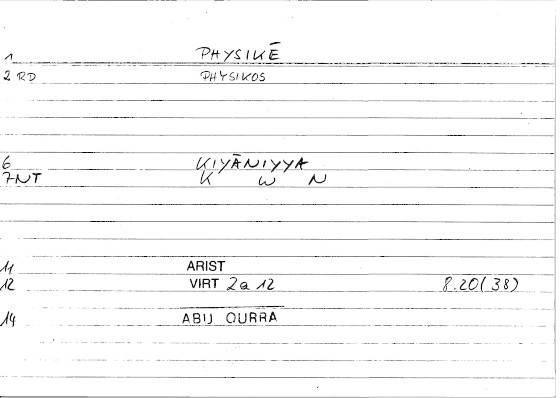 1 PHYSIKĒ
2 RD PHYSIKOS
6 KIYĀNIYYA
7NT K W N
11 ARIST
12 VIRT 2a 12 8.20(38)
14 ABU QURRA